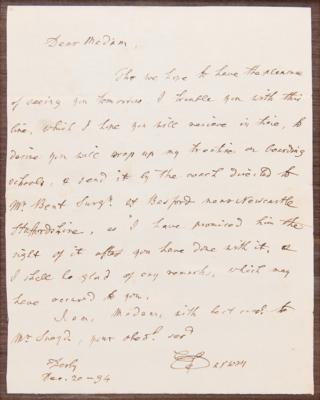 Dear Madam,
Tho we hope to have the pleasure
of seeing you tomorrow, I trouble you with this
line, which I hope you will recieve in time, to
desire you will wrap up my treatise on boarding
schools, & send it by the coach directed to
Mr. Bent Surgn. at Basford near Newcastle
Staffordshire, as I have promised him the
sight of it after you have done with it, &
I shall be glad of any remarks, which may
have occured to you.
I am, Madam, with best to
Mr. your obedt. servt
E Darwin
Derby
Dec. 20-94